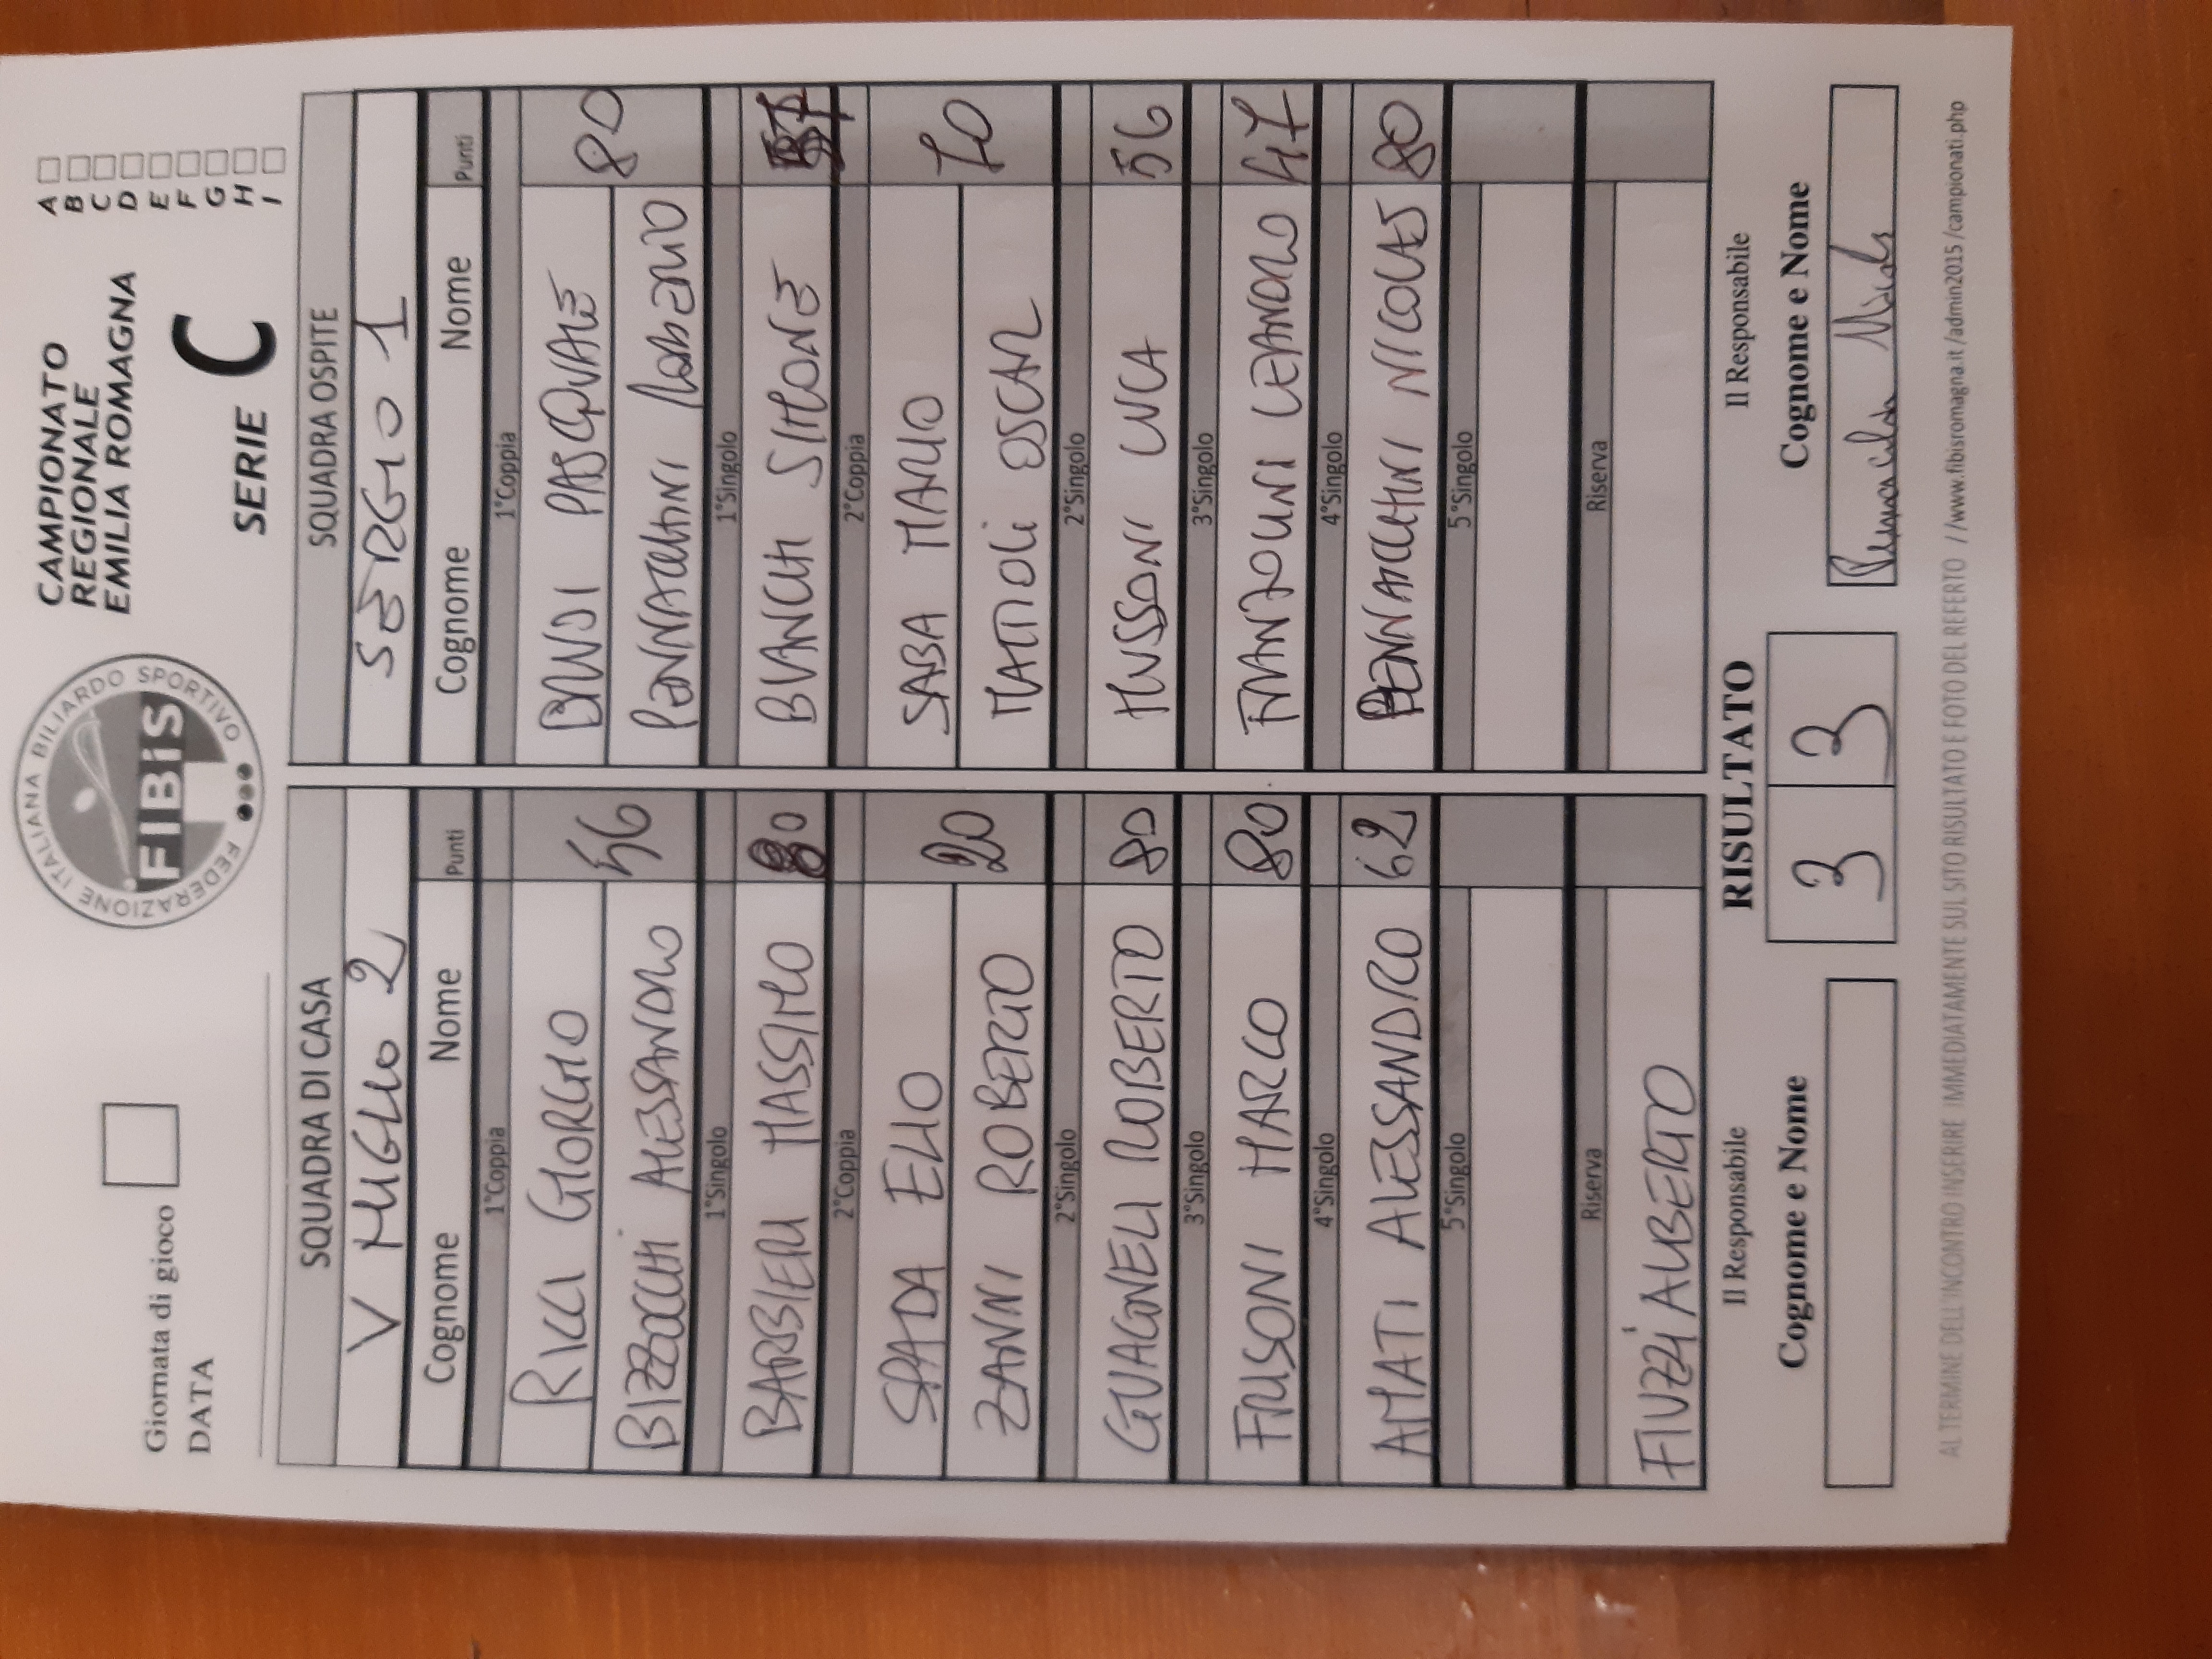 Giornata di gioco
DATA
FEDERAZIONE ITALIANA BILIARDO SPORTIVO
FIBiS
CAMPIONATO
REGIONALE
EMILIA ROMAGNA
SERIE C
A
B
C
D
E
F
G
H
I
SQUADRA DI CASA
V MIGLIO 2
Cognome Nome Punti
1°Coppia
RICCI GIORGIO
BIZZOCCHI ALESSANDRO
56
1°Singolo
BARBIERI MASSIMO 80
2°Coppia
SPADA ELIO
ZANNI ROBERTO
20
2°Singolo
GUAGNELI ROBERTO 80
3°Singolo
FRISONI MARCO 80
4°Singolo
AMATI ALESSANDRO 62
5°Singolo
Riserva
FIUZZI ALBERTO
SQUADRA OSPITE
SERGIO 1
Cognome Nome Punti
1°Coppia
BINDI PASQUALE
PENNACCHINI ROBERTO
80
1°Singolo
BIANCHI SIMONE
2°Coppia
SABA MARIO
MATTIOLI OSCAR
2°Singolo
MUSSONI LUCA 56
3°Singolo
FRANZOLINI LEANDRO 47
4°Singolo
PENNACCHINI NICOLAS 80
5°Singolo
Riserva
Il Responsabile
Cognome e Nome
RISULTATO
3 3
Il Responsabile
Cognome e Nome
AL TERMINE DELL'INCONTRO INSERIRE IMMEDIATAMENTE SUL SITO RISULTATO E FOTO DEL REFERTO //www.fibisromagna.it/admin2015/campionati.php